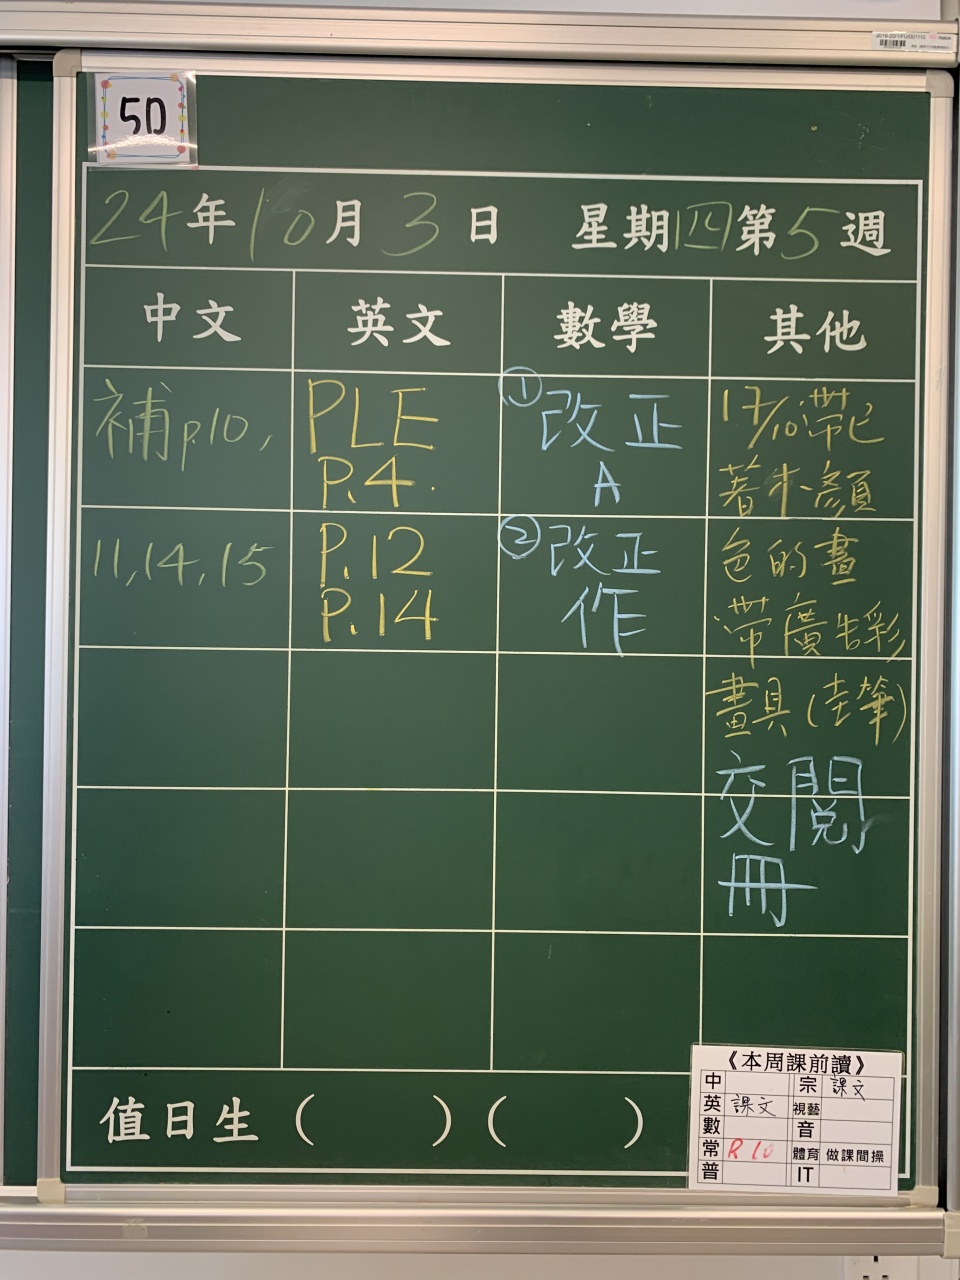 5D
24年10月3日 星期四第5週
中文 英文 數學 其他
補p.10,
11,14,15
PLE
P.4.
P.12
P.14
①改正
A
②改正
作
17/10帶已
著木顏
色的畫
帶廣告彩
畫具(走筆)
交閱
冊
值日生( )( )
《本周課前讀》
中 宗 課文
英 課文 視藝
數 音
常 R 10 體育 做課間操
普 IT